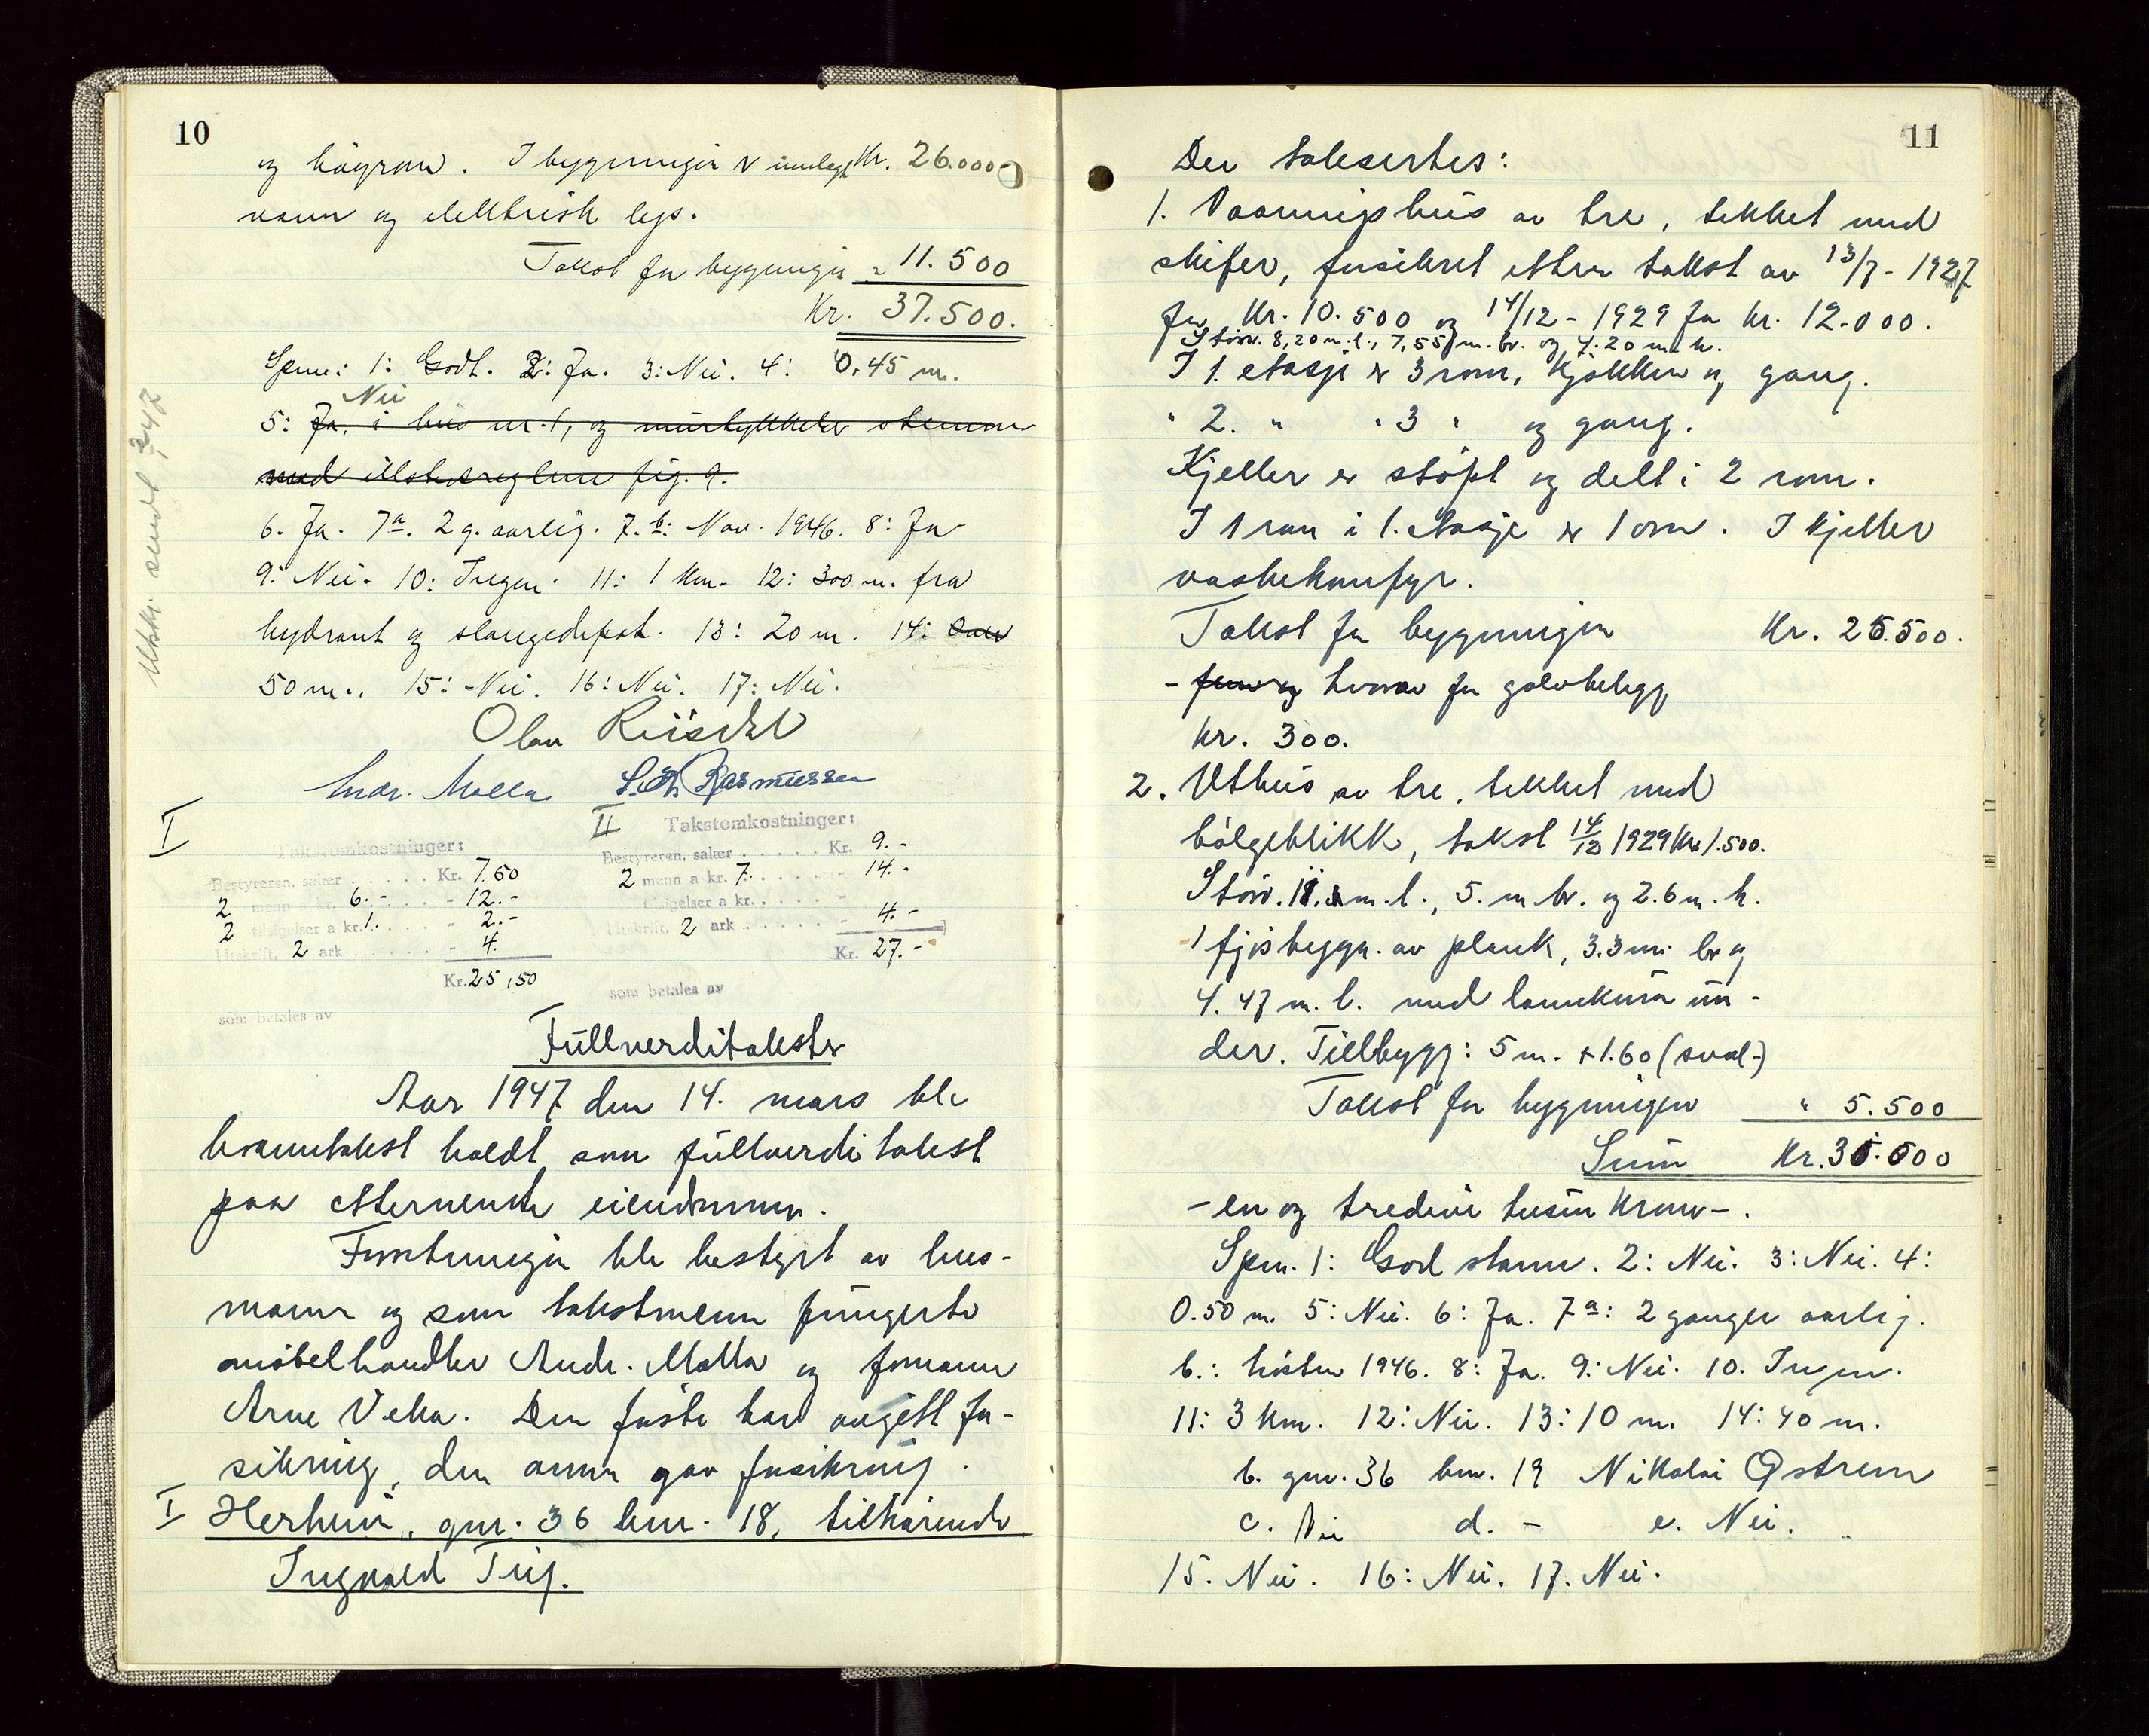 10
og höyrom. I bygningen er innlagt Kr. 26.000
vann og elektrisk lys.
Takst for bygningen " 11.500
Kr. 37.500.
Spm: 1: Godt. 2: Ja. 3: Nei. 4: 0,45 m.
Nei
5: Ja, i hus nr. 1, og murtykkelse stemmer
med illstedsreglene fig. 9.
6. Ja. 7a. 2 g. aarlig. 7.b: Nov. 1946. 8: Ja
9: Nei. 10: Ingen. 11: 1 km. 12: 300 m. fra
hydrant og slangedepot. 13: 20 m. 14:
50 m. 15: Nei. 16: Nei. 17: Nei.
Utskr. sendt
Olav
Andr. Molla S. Rasmussen
I
Takstomkostninger:
Bestyreren, salær . . . . . Kr. 7.50
2 menn a kr. 6.- . . . - 12.-
2 tilsigelser a kr. 1. . . . - 2.-
Utskrift, 2 ark . . . . . - 4.
Kr. 25,50
som betales av
II Takstomkostninger:
Bestyreren, salær . . . . . Kr. 9.-
2 menn a kr. 7. . . . - 14.-
tilsigelser a kr. . . . . -
Utskrift, 2 ark . . . . . - 4.-
Kr. 27.-
som betales av
Fullverditakster
Aar 1947 den 14. mars ble
branntakst holdt som fullverditakst
paa etternevnte eiendommer.
Forretningen ble bestyrt av lens-
mann og som takstmenn fungerte
möbelhandler Andr. Molla og formann
Arne Veka. Den förste har avgitt for-
sikring, den annen gav forsikring.
I Herheim, gnr. 36 bnr. 18, tilhörende
Ingvald Tuj.
11
Der takseertes:
1. Vaaningshus av tre, tekket med
skifer, forsikret etter takst av 13/7 - 1927
for Kr. 10.500 og 14/12 - 1929 for kr. 12.000.
Störr. 8,20 m. l., 7,55 m. br. og 4.20 m. h.
I 1. etasje er 3 rom, kjökken og gang.
" 2. " " 3 " og gang.
Kjeller er stöpt og delt i 2 rom.
I 1 rom i 1. etasje er 1 ovn. I kjeller
vaskekomfyr.
Takst for bygningen Kr. 25.500.
- hvorav for golvbelegg
kr. 300.
2. Uthus av tre, tekket med
bölgeblikk, takst 14/12 1929 kr. 1.500.
Störr. 11. m. l., 5. m. br. og 2.6 m. h.
1 fjösbygn. av plank, 3.3 m. br og
4.47 m. l. med lannkum un-
der. Tilbygg: 5 m. + 1.60 (sval-)
Takst for bygningen " 5.500
Sum Kr. 31.000
- en og tredive tusen kroner -.
Spm. 1: God stann. 2: Nei. 3: Nei. 4:
0.50 m. 5: Nei. 6: Ja. 7a: 2 ganger aarlig.
b.: hösten 1946. 8: Ja. 9: Nei. 10. Ingen.
11: 3 km. 12: Nei. 13: 10 m. 14: 40 m.
b. gnr. 36 bnr. 19 Nikolai Østrem
c. Nei d. - e. Nei.
15. Nei. 16: Nei. 17. Nei.